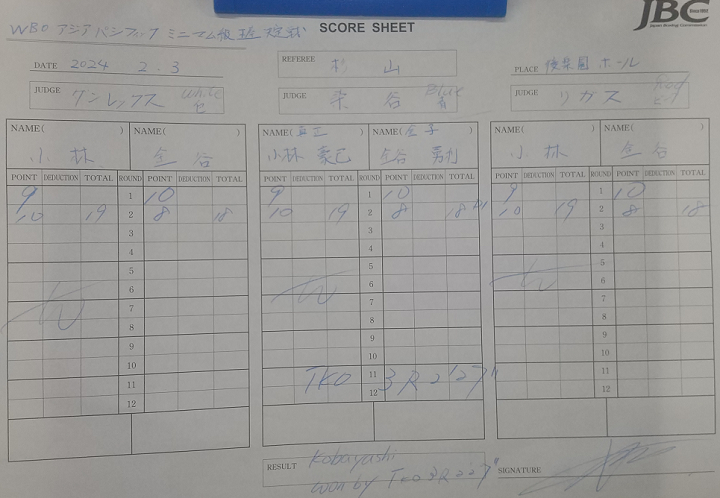 WBO アジアパシフィック ミニマム級 王座決定戦
SCORE SHEET
JBC
DATE 2024 2.3
REFEREE 杉山
PLACE 後楽園ホール
JUDGE サンレックス White 色
JUDGE 染谷 Blue 青
JUDGE リガス Red
NAME( ) NAME( ) NAME(真正) NAME(金子) NAME( ) NAME( )
小林 金谷 小林豪己 金谷勇利 小林 金谷
POINT DEDUCTION TOTAL ROUND POINT DEDUCTION TOTAL POINT DEDUCTION TOTAL ROUND POINT DEDUCTION TOTAL POINT DEDUCTION TOTAL ROUND POINT DEDUCTION TOTAL
9 1 10 9 1 10 9 1 10
10 19 2 8 18 10 19 2 8 18 10 19 2 8 18
3 3 3
4 4 4
5 5 5
6 6 6
7 7 7
8 8 8
9 9 9
10 10 10
11 TKO 11 3R 2'27" 11
12 12 12
RESULT Kobayashi
won by TKO 3R 2'27"
SIGNATURE